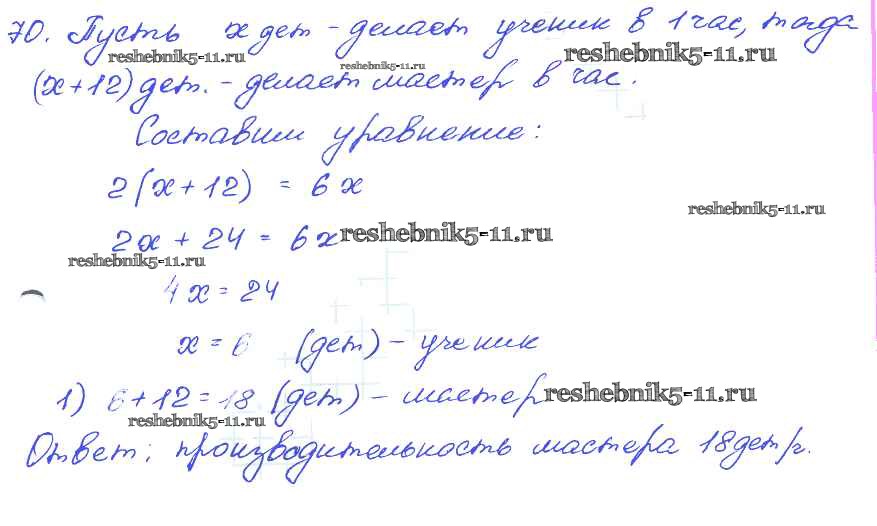 70. Пусть x дет - делает ученик в 1 час, тогда
reshebnik5-11.ru reshebnik5-11.ru
reshebnik5-11.ru
(x+12) дет. - делает мастер в час.
Составим уравнение:
2(x+12) = 6x
reshebnik5-11.ru
2x + 24 = 6x reshebnik5-11.ru
reshebnik5-11.ru
4x = 24
x = 6 (дет) - ученик
1) 6+12=18 (дет) - мастер reshebnik5-11.ru
reshebnik5-11.ru
Ответ: производительность мастера 18 дет/г.